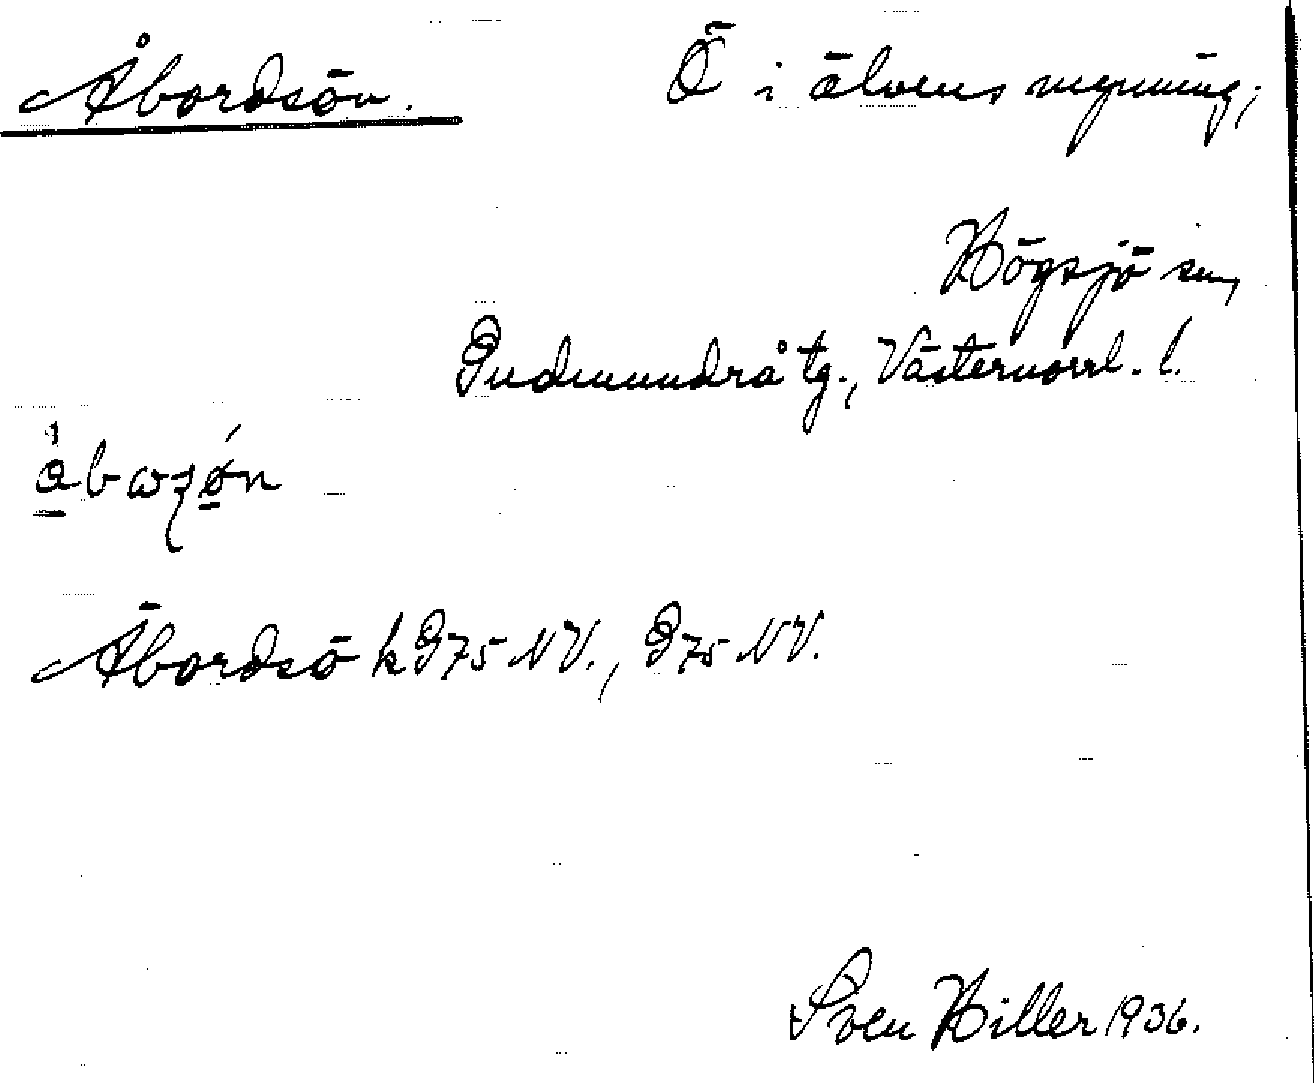 Åbordsön.
Ö i älvens mynning;
Högsjö sn,
Gudmundrå tg., Västernorrl. l.
Åbordsö k G75 NV., G75 NV.
Sven Hiller 1936.